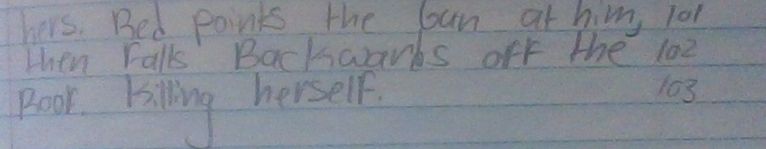 hers. Red points the Gun at him, 101
then Falls Backwards off the 102
Roof. Killing herself. 103